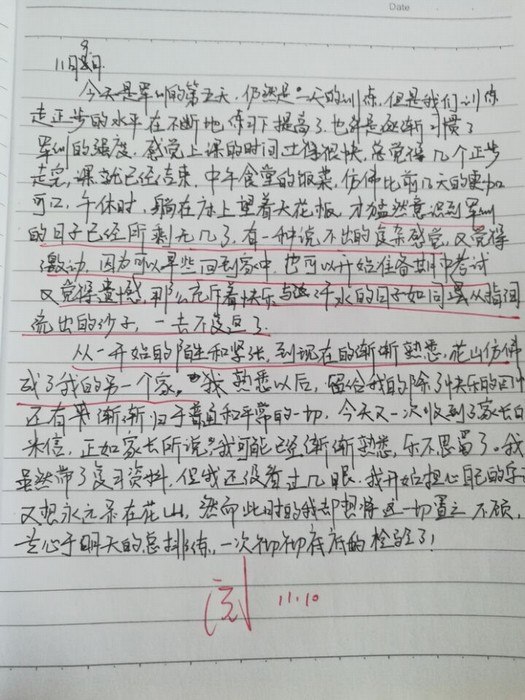 Date
11月9日
今天是军训的第五天，仍然是一天的训练，但是我们训练
走正步的水平在不断地练习下提高了，也许是逐渐习惯了
军训的强度，感觉上课的时间过得很快，总觉得几个正步
走完，课就已经结束，中午食堂的饭菜，仿佛比前几天的更加
可口，午休时，躺在床上望着天花板，才猛然意识到军训
的日子已经所剩无几了，有一种说不出的复杂感觉，又觉得
激动，因为可以早些回到家中，也可以开始准备期中考试
又觉得遗憾，那么充斥着快乐与汗水的日子如同从指间
流出的沙子，一去不复返了
从一开始的陌生和紧张，到现在的渐渐熟悉，花山仿佛
成了我的另一个家，我熟悉以后，留给我的除了快乐的回忆
还有渐渐归于普通和平常的一切，今天又一次收到了家长的
来信，正如家长所说，我可能已经渐渐熟悉，乐不思蜀了。我
虽然带了复习资料，但我还没看过几眼，我开始担心自己的学
又想永远呆在花山，然而此时的我却想将这一切置之不顾，
专心于明天的总排练，一次彻彻底底的检验了！
阅 11.10